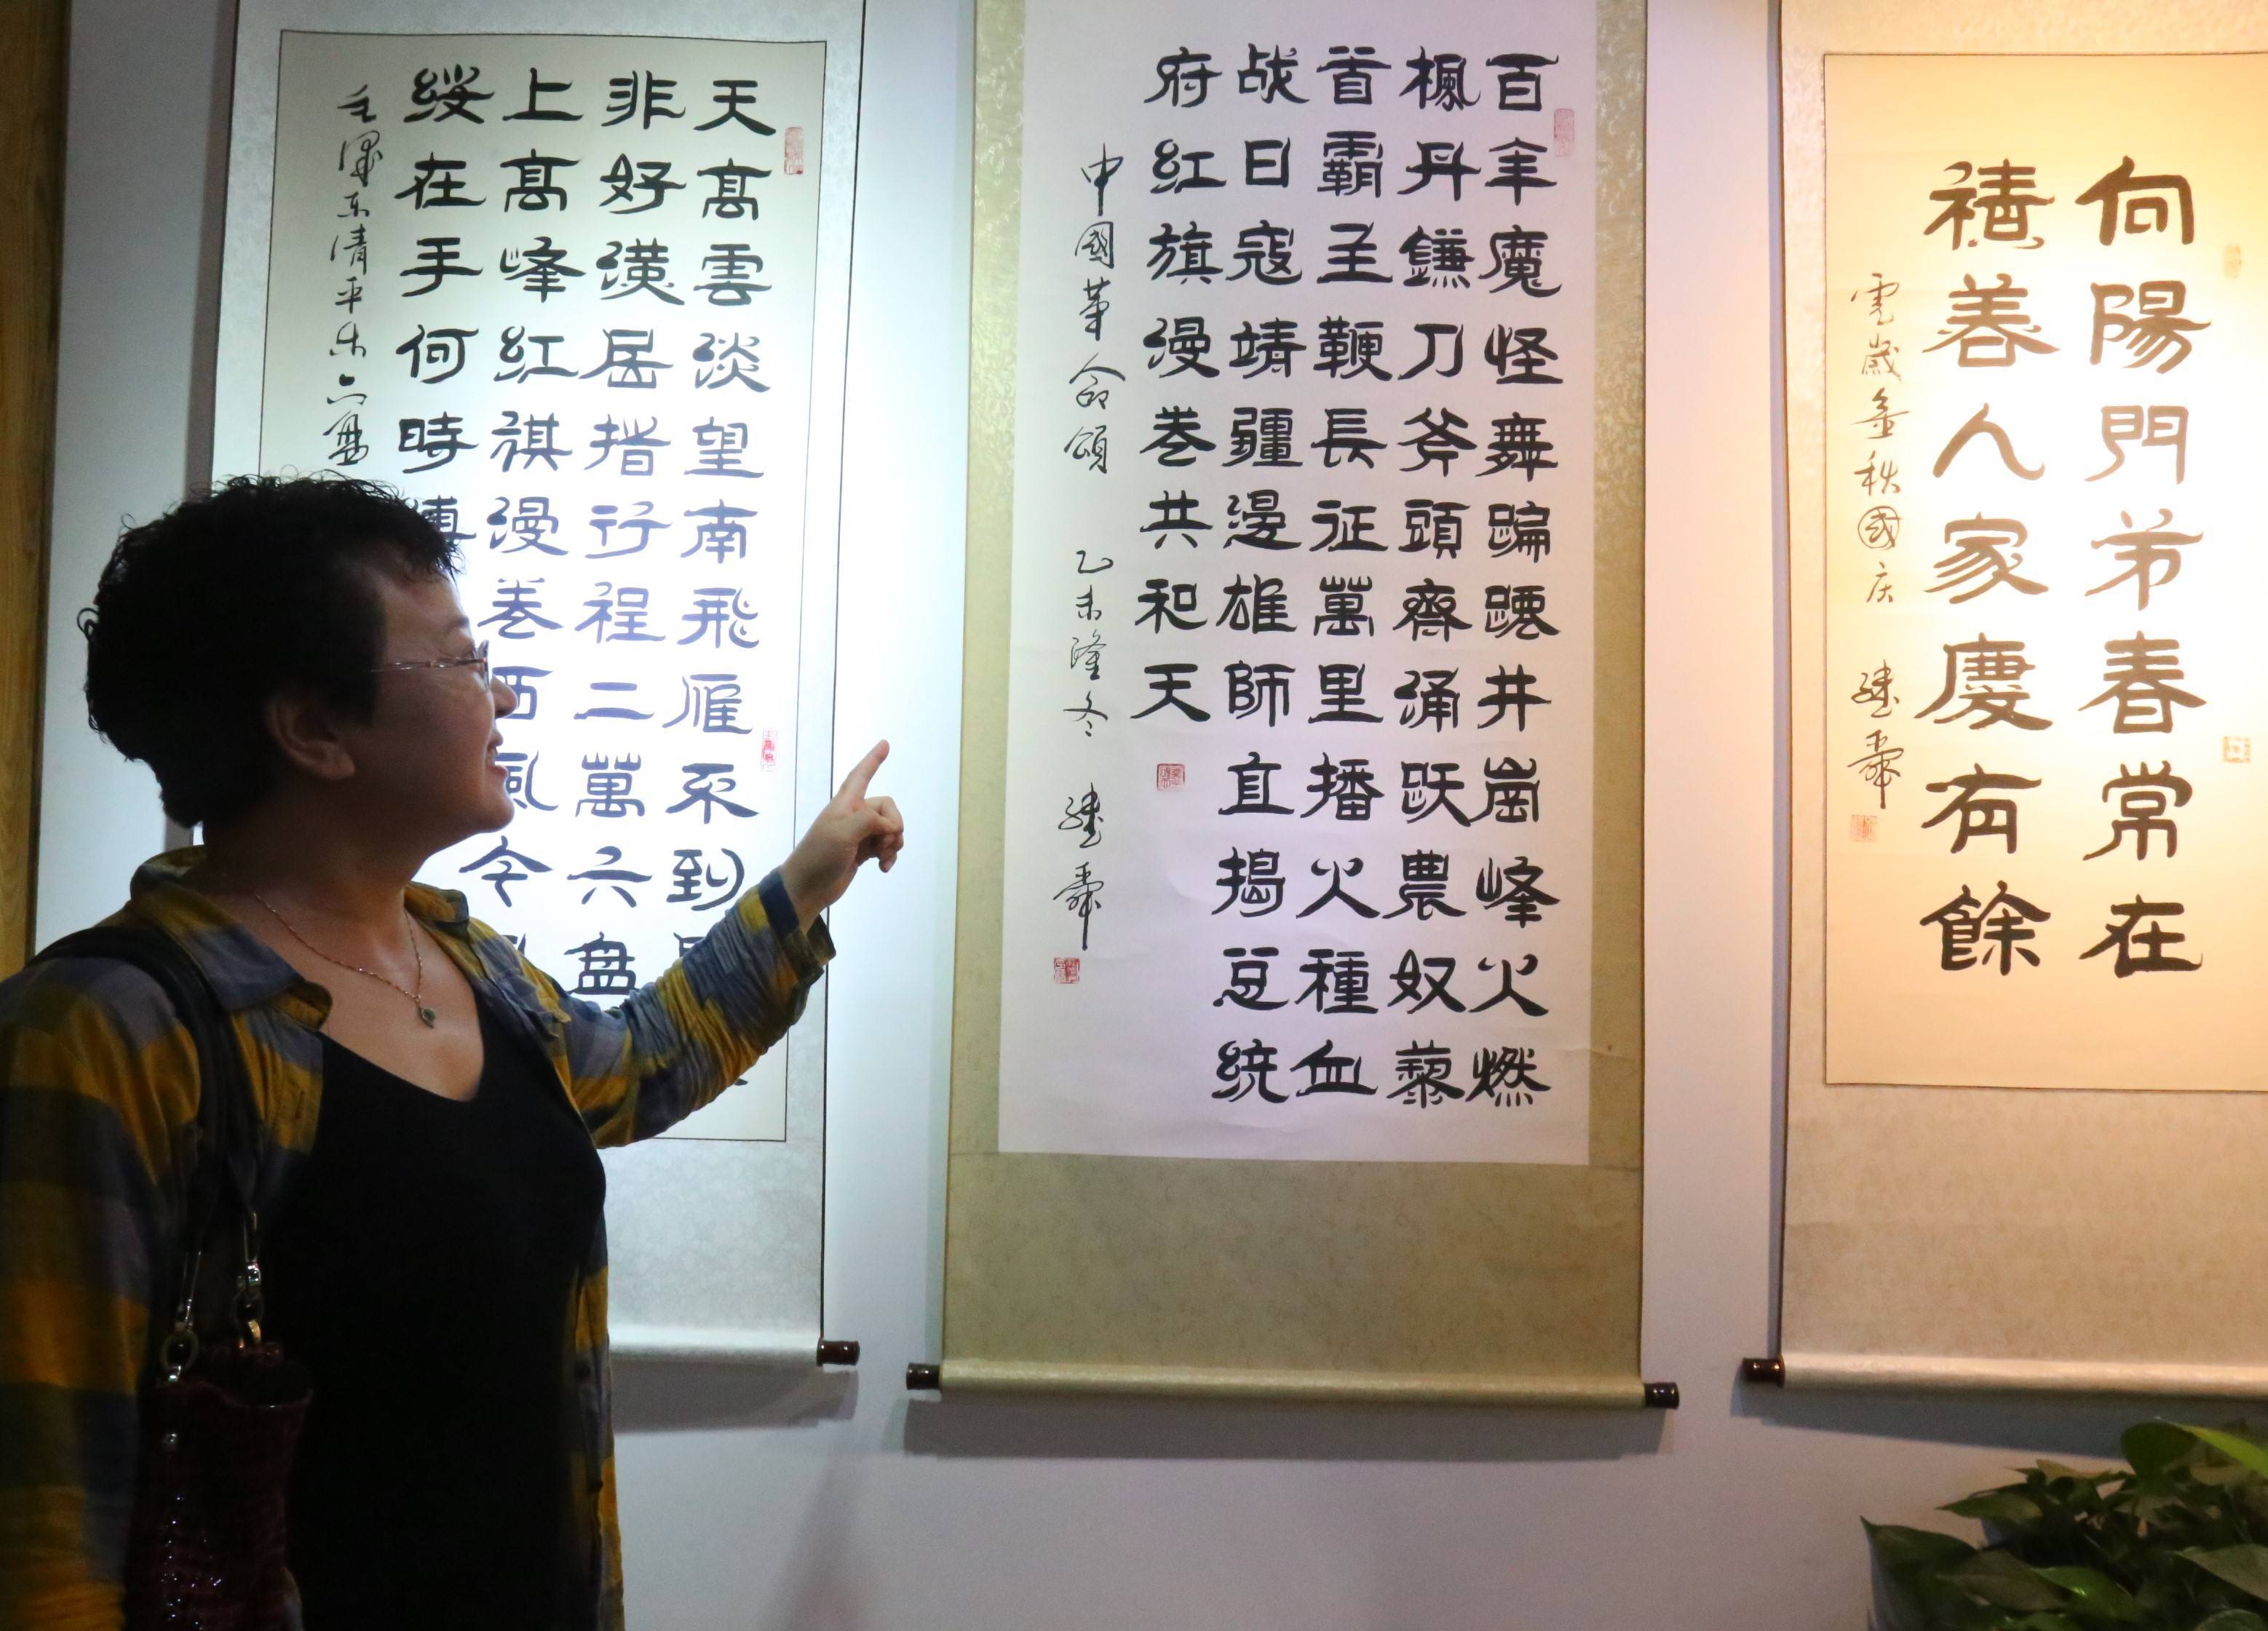 向陽門弟春常在
禧善人家慶有餘
歲金秋國庆
百年魔怪舞蹁躚井崗峰火燃
楓丹鐮刀斧頭齊涌跃農奴藜
首霸主鞭長征萬里播火種血
战日寇靖疆邊雄師直搗总統
府红旗漫卷共和天
中國革命頌 乙未隆冬
天高雲淡望南飛雁不到
非好漢屈指行程二萬六盘
上高峰红旗漫卷西風今
缨在手何時缚
毛澤东清平乐六盘